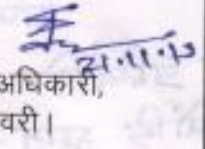 21.11.17
अधिकारी,
वरी।